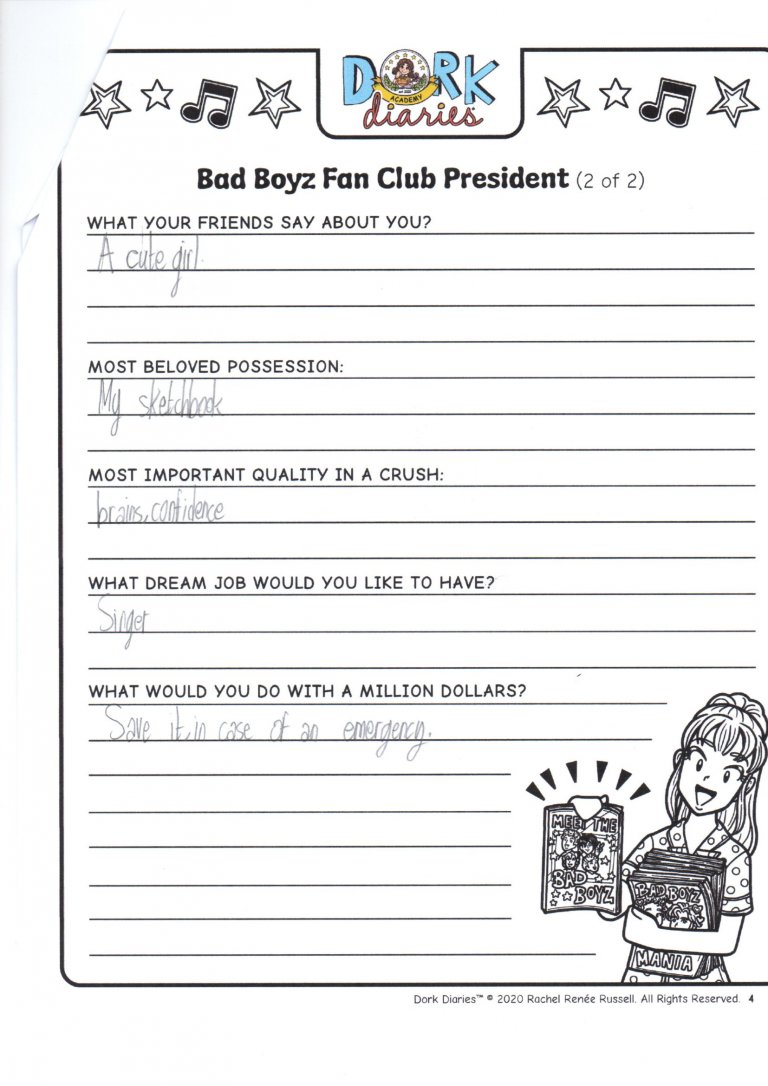 DORK
ACADEMY
diaries
Bad Boyz Fan Club President (2 of 2)
WHAT YOUR FRIENDS SAY ABOUT YOU?
A cute girl.
MOST BELOVED POSSESSION:
My sketchbook
MOST IMPORTANT QUALITY IN A CRUSH:
brains, confidence
WHAT DREAM JOB WOULD YOU LIKE TO HAVE?
Singer
WHAT WOULD YOU DO WITH A MILLION DOLLARS?
Save it, in case of an emergency.
MEET THE
BAD
BOYZ
BAD BOYZ
MANIA
Dork Diaries™ © 2020 Rachel Renée Russell. All Rights Reserved. 4